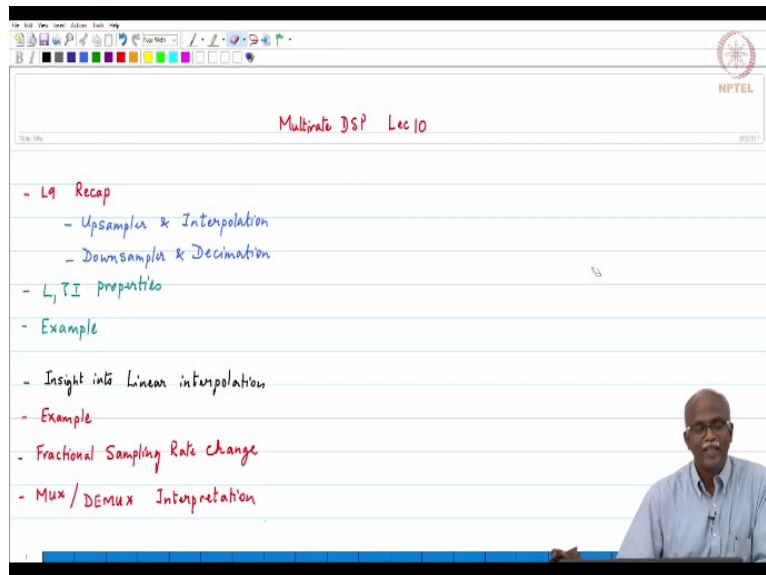 File Edit View Insert Actions Tools Help
Page Width
B I
NPTEL
Multirate DSP Lec 10
Note Title
- L9 Recap
- Upsampler & Interpolation
- Downsampler & Decimation
- L, TI properties
- Example
- Insight into Linear interpolation
- Example
- Fractional Sampling Rate change
- Mux / DEMUX Interpretation